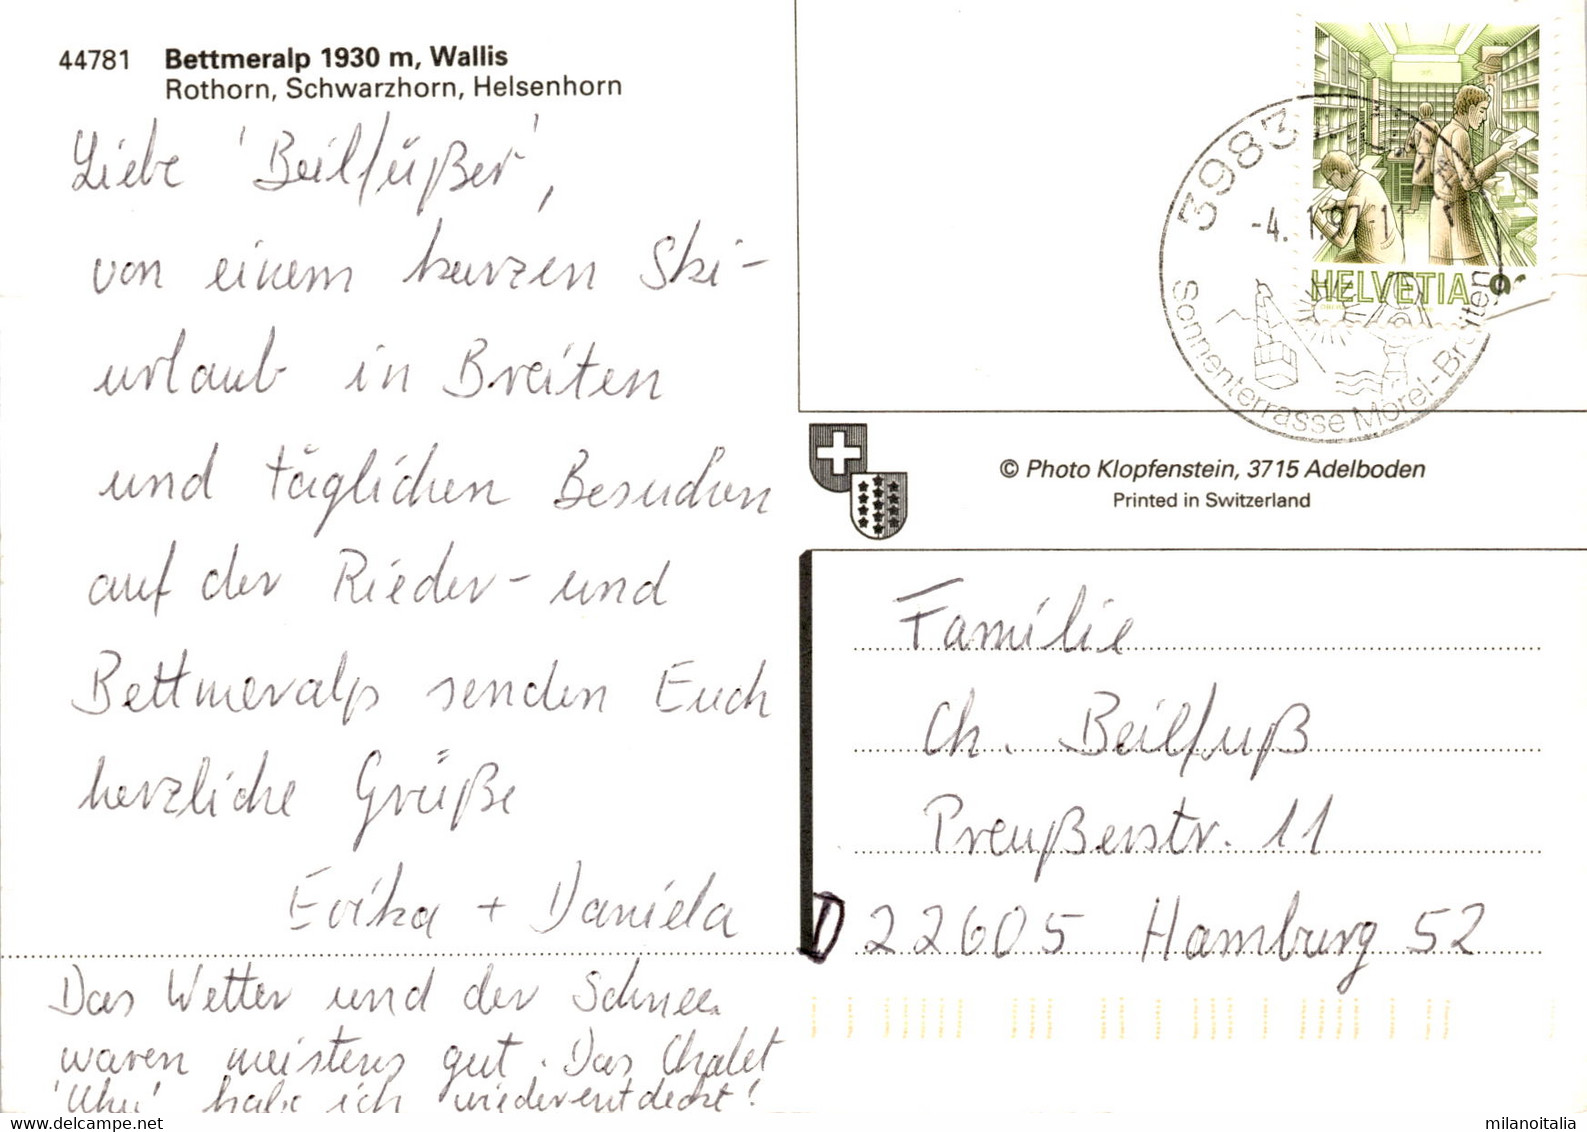 44781 Bettmeralp 1930 m, Wallis
Rothorn, Schwarzhorn, Helsenhorn
Liebe 'Beilfüßer',
von einem kurzen Ski-
urlaub in Breiten
und täglichen Besuchen
auf der Rieder- und
Bettmeralp senden Euch
herzliche Grüße
Erika + Daniela
Das Wetter und der Schnee
waren meistens gut. Das Chalet
'Uhu' habe ich wiederentdeckt!
3983
-4. 1.97-11
Sonnenterrasse Mörel-Breiten
HELVETIA
© Photo Klopfenstein, 3715 Adelboden
Printed in Switzerland
Familie
Ch. Beilfuß
Preußerstr. 11
D 22605 Hamburg 52
milanoitalia